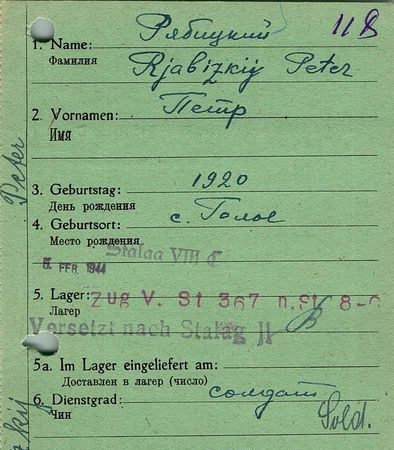 Рябицкий
11 B
1. Name:
Фамилия
Rjabizkij Peter
2. Vornamen: Петр
Имя
Peter
3. Geburtstag: 1920
День рождения
4. Geburtsort: с. Голое
Место рождения
Stalag VIII C
5. FEB. 1944
5. Lager: Zug V. St 367 n. St. 8-C
Лагер
Versetzt nach Stalag II B
5a. Im Lager eingeliefert am:
Доставлен в лагер (число)
6. Dienstgrad: солдат
Чин
Sold.